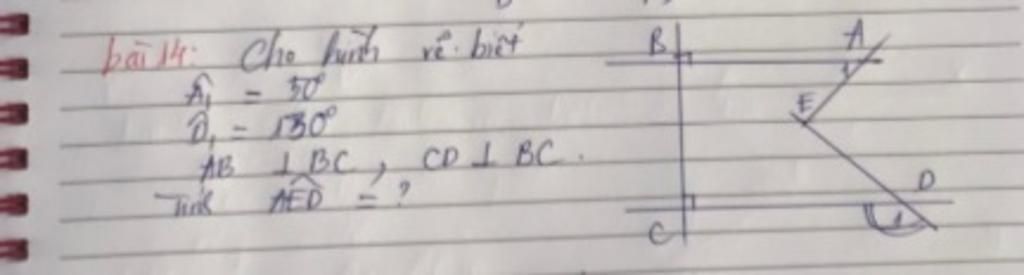 bài 14: Cho hình vẽ. biết
Â₁ = 50°
D̂₁ = 130°
AB ⊥ BC, CD ⊥ BC.
Tính AED = ?
B
A
1
E
D
1
C